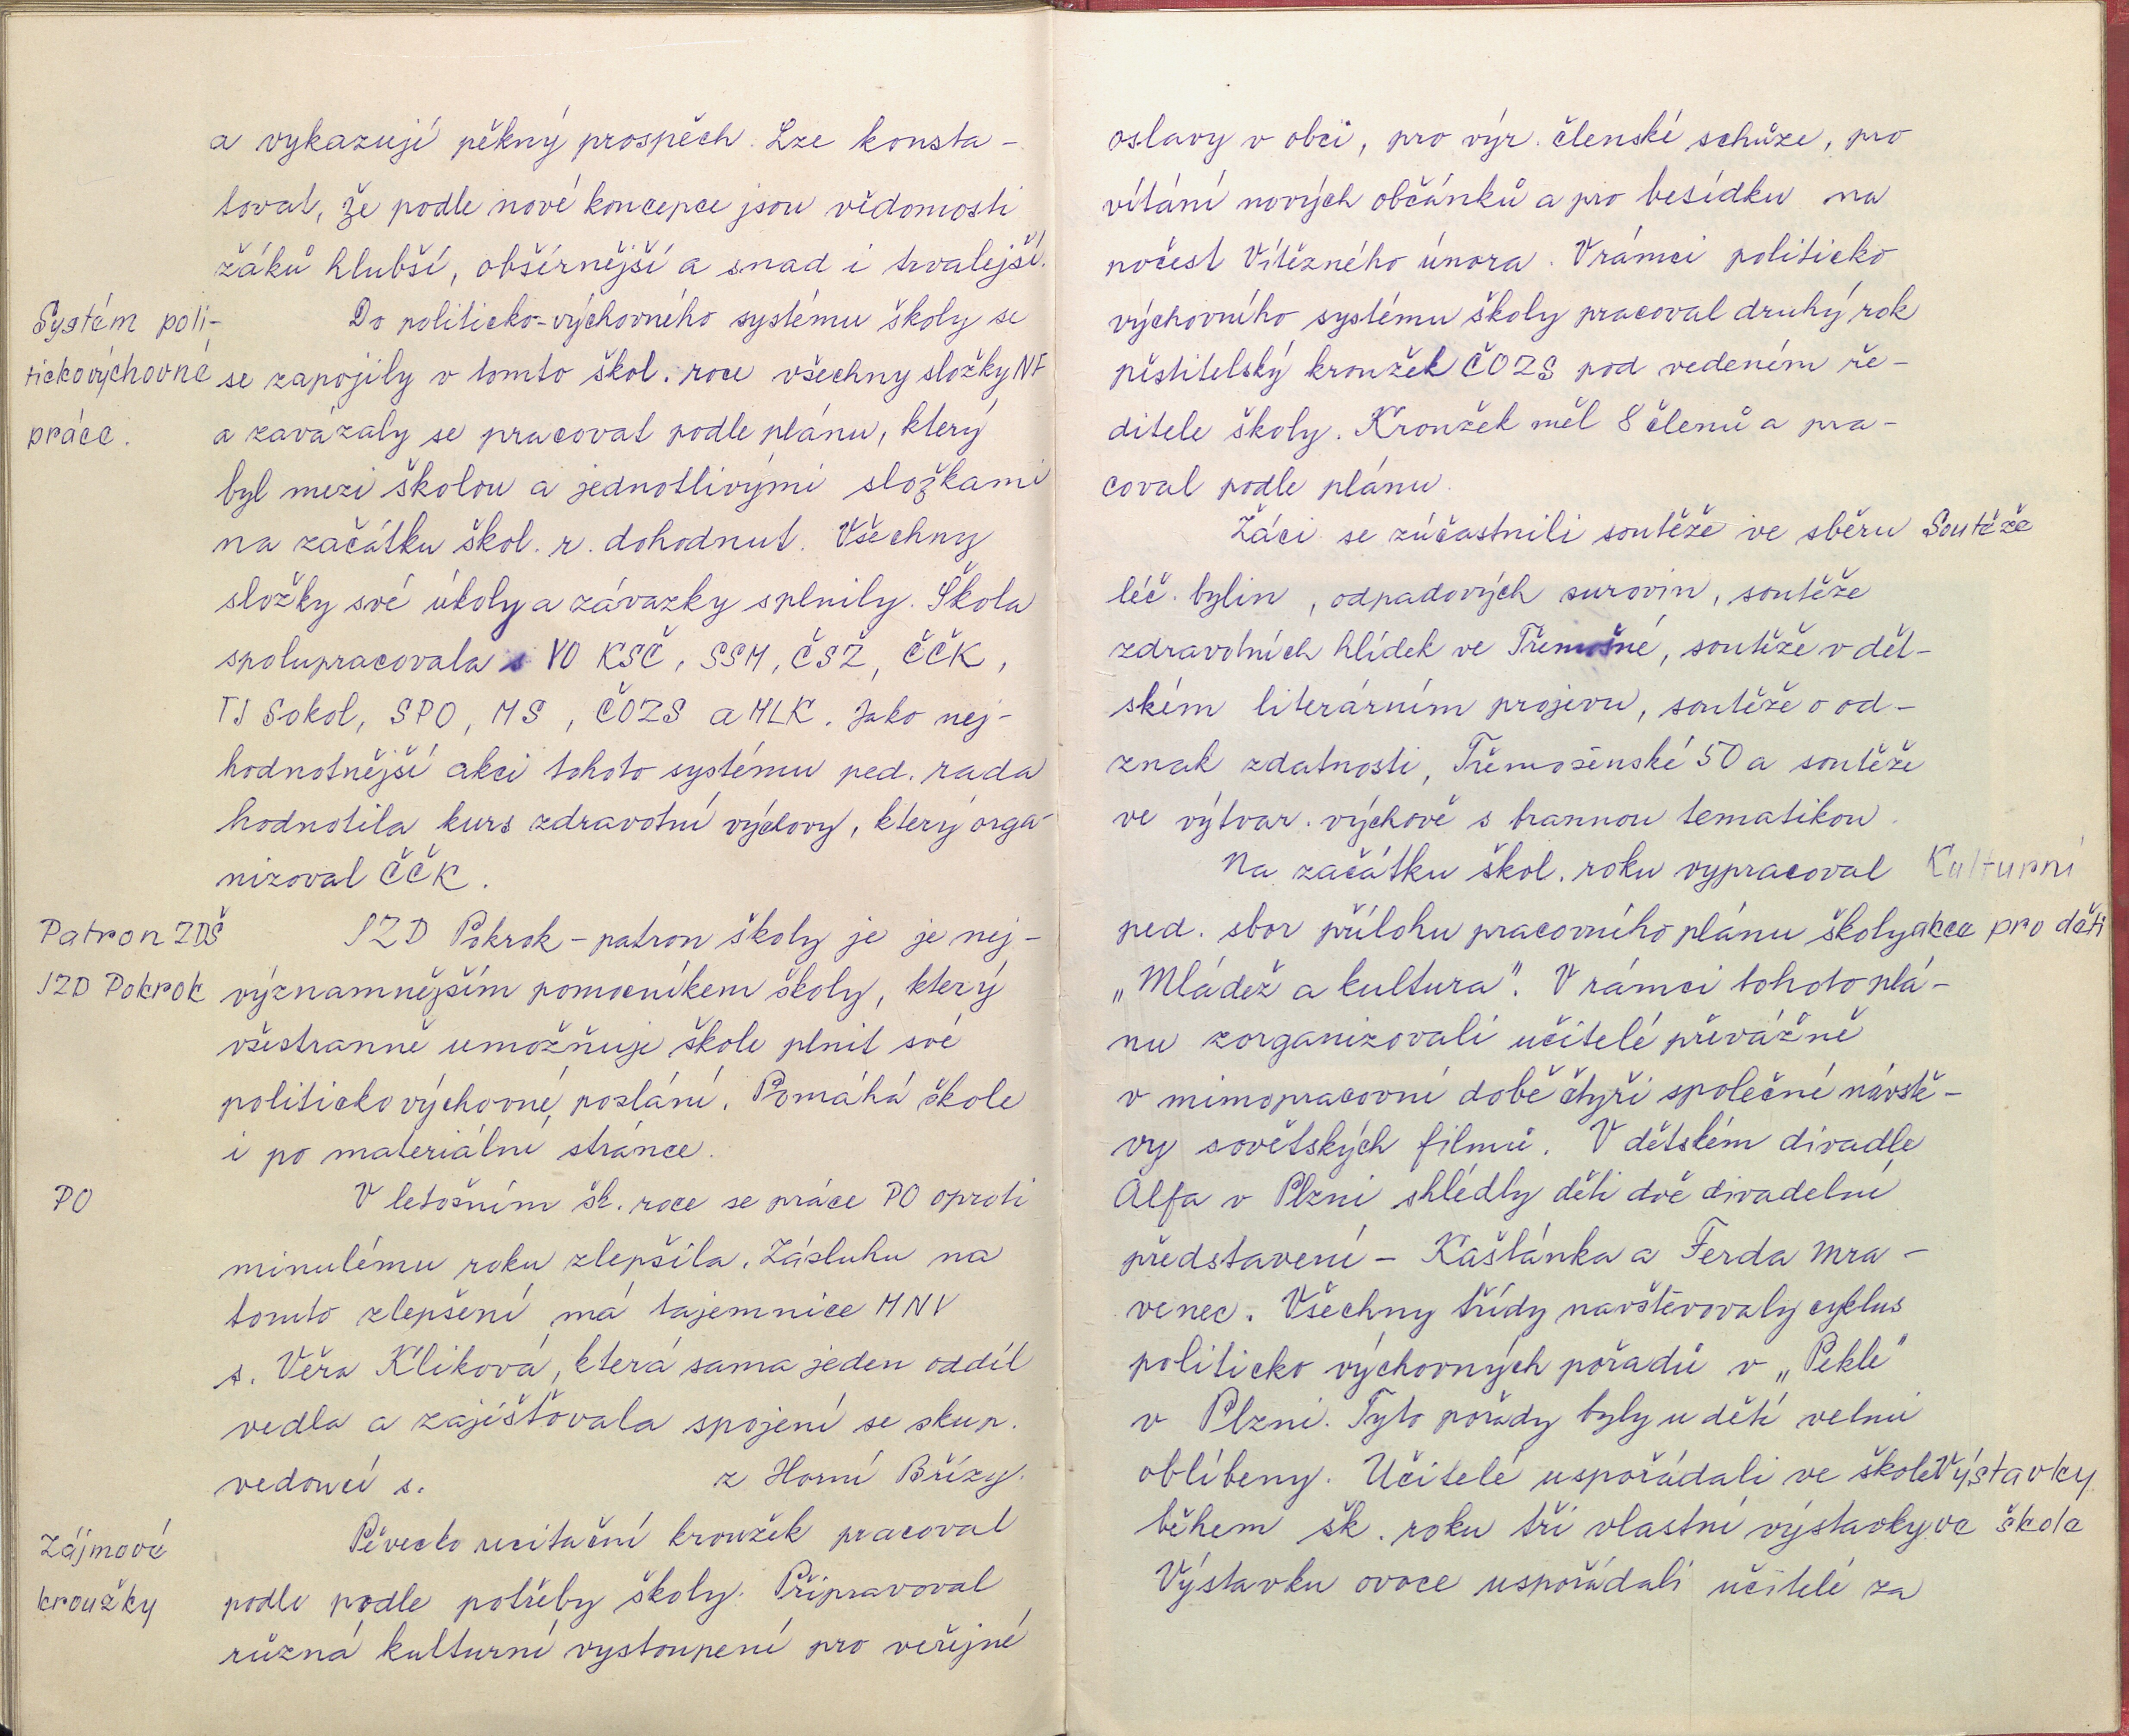 a vykazují pěkný prospěch. Lze konsta-
tovat, že podle nové koncepce jsou vědomosti
žáků hlubší, obšírnější a snad i trvalejší.
Systém poli-
tickovýchovné
práce.
Do politicko-výchovného systému školy se
se zapojily v tomto škol. roce všechny složky NF
a zavázaly se pracovat podle plánu, který
byl mezi školou a jednotlivými složkami
na začátku škol. r. dohodnut. Všechny
složky své úkoly a závazky splnily. Škola
spolupracovala s VO KSČ, SSM, ČSŽ, ČČK,
TJ Sokol, SPO, MS, ČOZS a MLK. Jako nej-
hodnotnější akci tohoto systému ped. rada
hodnotila kurs zdravotní výchovy, který orga-
nizoval ČČK.
Patron ZDŠ
JZD Pokrok
JZD Pokrok - patron školy je je nej-
významnějším pomocníkem školy, který
všestranně umožňuje škole plnit své
politickovýchovné poslání. Pomáhá škole
i po materiální stránce.
PO
V letošním šk. roce se práce PO oproti
minulému roku zlepšila. Zásluhu na
tomto zlepšení má tajemnice MNV
s. Věra Klíková, která sama jeden oddíl
vedla a zajišťovala spojení se skup.
vedoucí s. z Horní Břízy.
Zájmové
kroužky
Pěvecko recitační kroužek pracoval
podle podle potřeby školy. Připravoval
různá kulturní vystoupení pro veřejné
oslavy v obci, pro výr. členské schůze, pro
vítání nových občánků a pro besídku na
počest Vítězného února. V rámci politicko
výchovního systému školy pracoval druhý rok
pěstitelský kroužek ČOZS pod vedeném ře-
ditele školy. Kroužek měl 8 členů a pra-
coval podle plánu.
Žáci se zúčastnili soutěže ve sběru
Soutěže
léč. bylin, odpadových surovin, soutěže
zdravotních hlídek ve Třemošné, soutěže v dět-
ském literárním projevu, soutěže o od-
znak zdatnosti, Třemošenské 50 a soutěže
ve výtvar. výchově s brannou tematikou.
Na začátku škol. roku vypracoval
Kulturní
ped. sbor přílohu pracovního plánu školy
akce pro děti
„Mládež a kultura". V rámci tohoto plá-
nu zorganizovali učitelé převážně
v mimopracovní době čtyři společné návště-
vy sovětských filmů. V dětském divadle
Alfa v Plzni shlédly děti dvě divadelní
představení - Kaštánka a Ferda mra-
venec. Všechny třídy navštěvovaly cyklus
politicko výchovných pořadů v „Pekle"
v Plzni. Tyto pořady byly u dětí velmi
oblíbeny. Učitelé uspořádali ve škole
Výstavky
během šk. roku tři vlastní výstavky.
ve škole
Výstavku ovoce uspořádali učitelé za